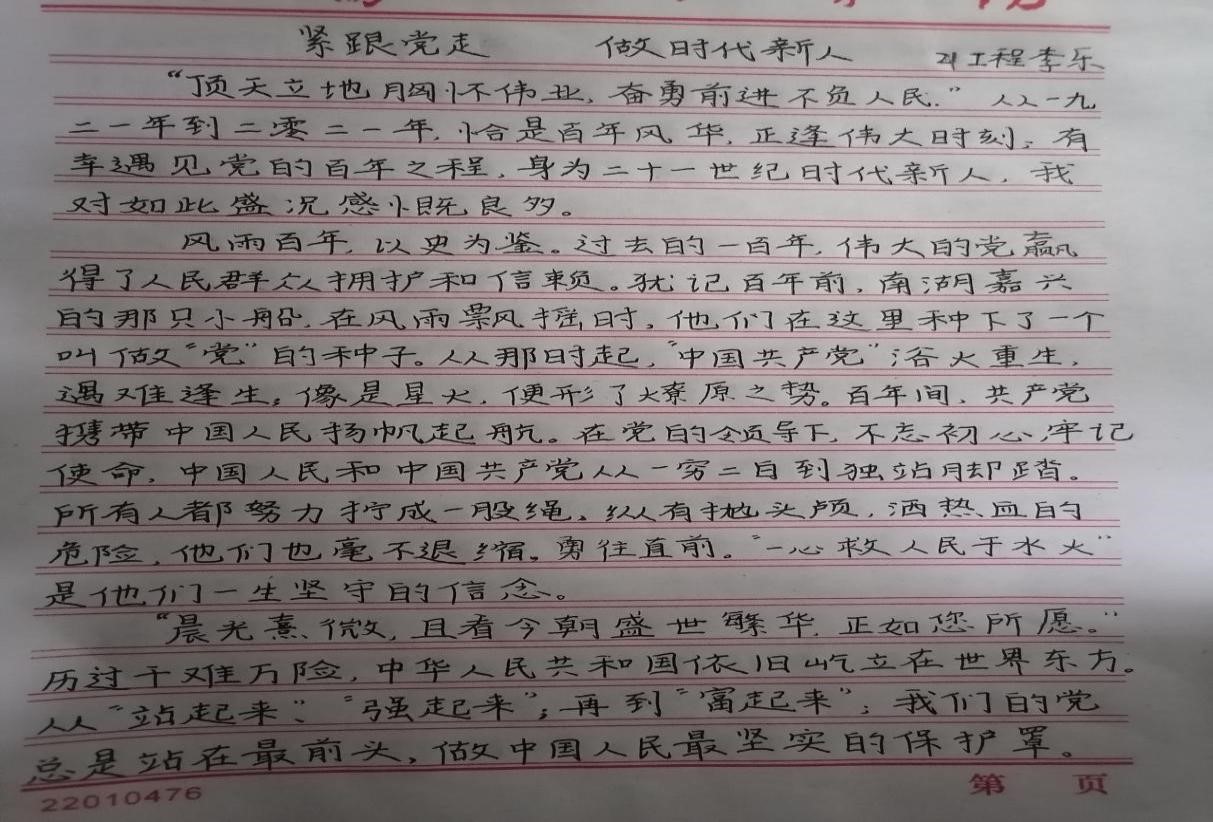 紧跟党走 做时代新人 21工程李乐
“顶天立地胸怀伟业,奋勇前进不负人民.” 从一九
二一年到二零二一年,恰是百年风华,正逢伟大时刻;有
幸遇见党的百年之程,身为二十一世纪时代新人,我
对如此盛况感慨良多。
风雨百年,以史为鉴。过去的一百年,伟大的党赢
得了人民群众拥护和信赖。犹记百年前,南湖嘉兴
的那只小船,在风雨飘摇时,他们在这里种下了一个
叫做“党”的种子。从那时起,“中国共产党”浴火重生,
遇难逢生,像是星火,便形了燎原之势。百年间,共产党
携带中国人民扬帆起航。在党的领导下,不忘初心,牢记
使命,中国人民和中国共产党从一穷二白到独站脚踏。
所有人都努力拧成一股绳,纵有抛头颅,洒热血的
危险,他们也毫不退缩,勇往直前。“一心救人民于水火”
是他们一生坚守的信念。
“晨光熹微,且看今朝盛世繁华,正如您所愿。”
历过千难万险,中华人民共和国依旧屹立在世界东方。
从“站起来”、“强起来”;再到“富起来”;我们的党
总是站在最前头,做中国人民最坚实的保护罩。
22010476 第 页